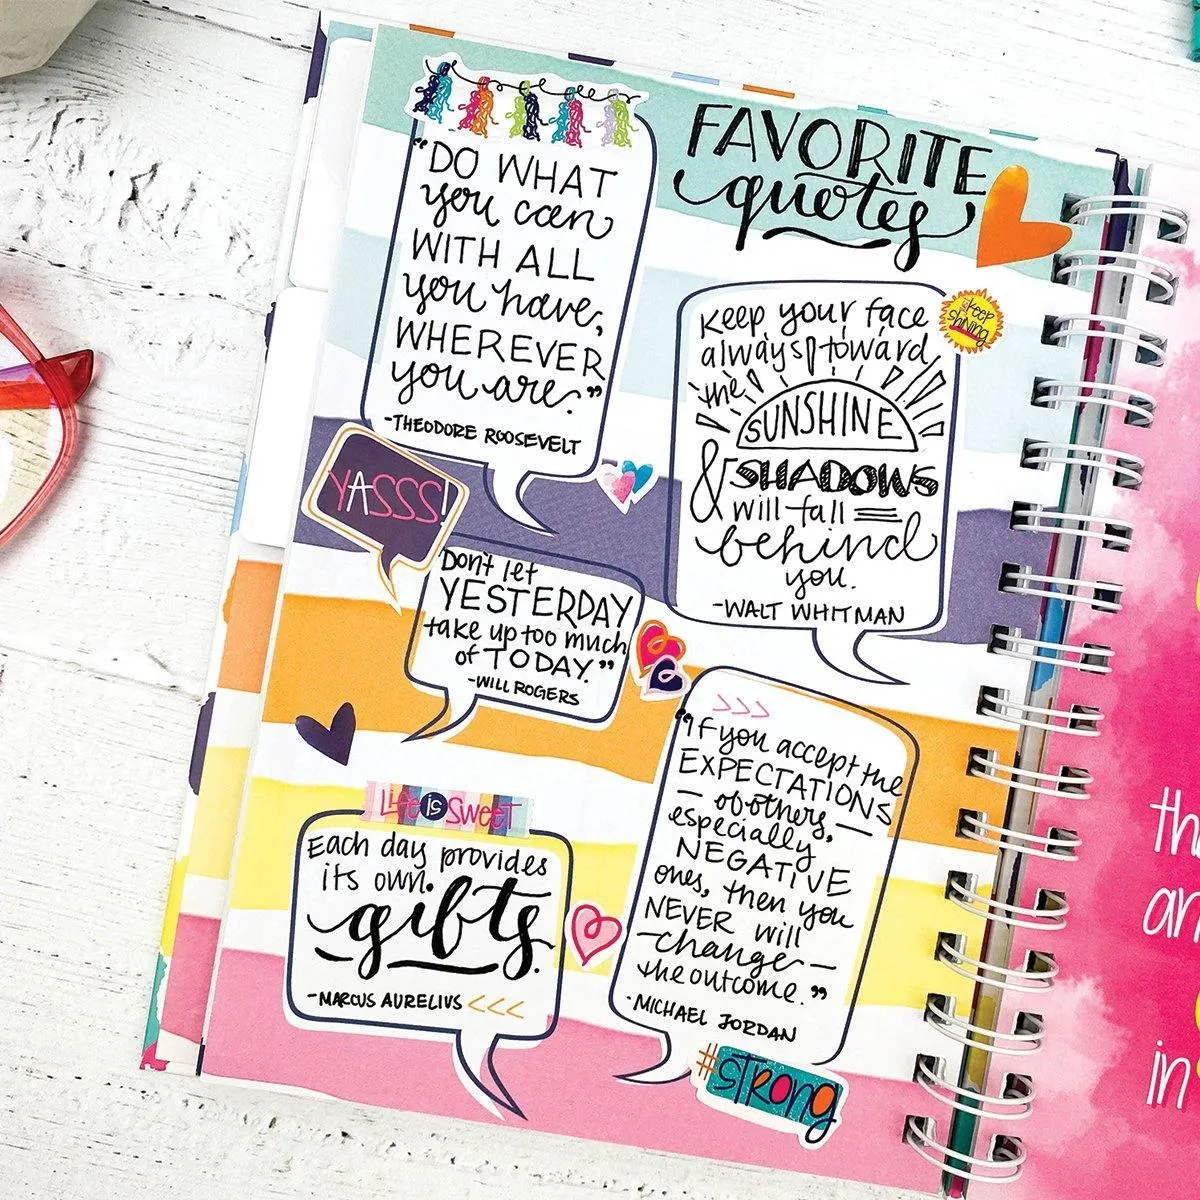 FAVORITE
quotes
"DO WHAT
you can
WITH ALL
you have,
WHEREVER
you are."
-THEODORE ROOSEVELT
Keep your face
always toward
the
SUNSHINE
& SHADOWS
will fall
behind
you.
-WALT WHITMAN
Keep
shining
YASSS!
Don't let
YESTERDAY
take up too much
of TODAY."
-WILL ROGERS
>>>
"If you accept the
EXPECTATIONS
- of others, -
especially
NEGATIVE
ones, then you
NEVER will
- change -
the outcome."
-MICHAEL JORDAN
#STRONG
LIFE is SWEET
Each day provides
its own
gifts.
-MARCUS AURELIUS <<<
in